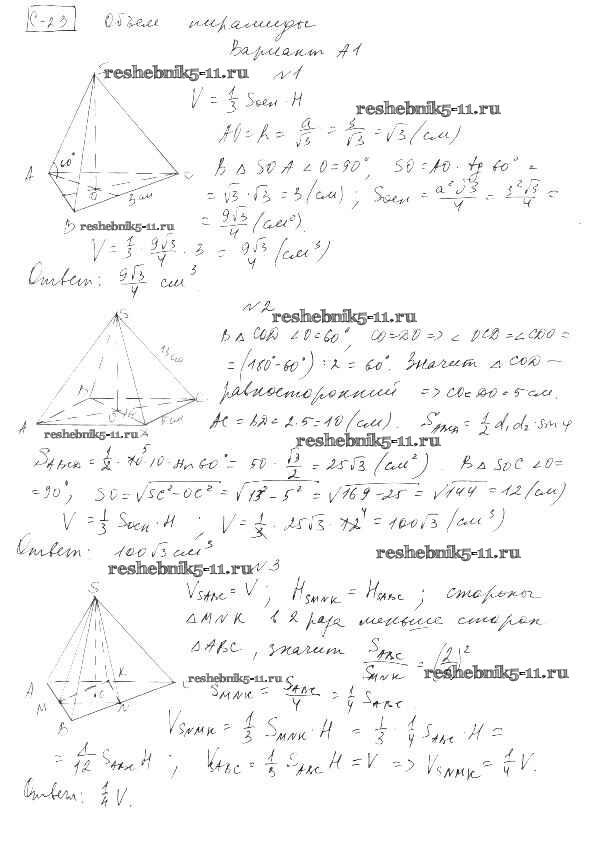 С-23 Объем пирамиды
Вариант А1
reshebnik5-11.ru №1
V = 1/3 Sосн · H
reshebnik5-11.ru
AO = R = a/√3 = 3/√3 = √3 (см)
В △ SOA ∠O = 90°, SO = AO · tg 60° =
= √3 · √3 = 3 (см); Sосн = a²√3/4 = 3²√3/4 =
= 9√3/4 (см²)
A 60° O 3 см B
reshebnik5-11.ru
V = 1/3 · 9√3/4 · 3 = 9√3/4 (см³)
Ответ: 9√3/4 см³
№2
reshebnik5-11.ru
В △ COD ∠O = 60°, CO = DO => ∠ OCD = ∠CDO =
= (180° - 60°) : 2 = 60°. Значит △ COD –
равносторонний => CO = DO = 5 см.
AC = BD = 2 · 5 = 10 (см). SABCD = 1/2 d₁d₂ · sin φ
S 13 см B C A O 5 см
reshebnik5-11.ru
reshebnik5-11.ru
SABCD = 1/2 · 10 · 10 · sin 60° = 50 · √3/2 = 25√3 (см²). В △ SOC ∠O =
= 90°, SO = √SC² - OC² = √13² - 5² = √169 - 25 = √144 = 12 (см)
V = 1/3 Sосн · H ; V = 1/3 · 25√3 · 12 = 100√3 (см³)
Ответ: 100√3 см³
reshebnik5-11.ru
reshebnik5-11.ru №3
VSABC = V ; HSMNK = HSABC ; стороны
△MNK в 2 раза меньше сторон
△ABC, значит SABC/SMNK = (2)²
reshebnik5-11.ru
S A K M O N B C
reshebnik5-11.ru
SMNK = SABC/4 = 1/4 SABC
VSNMK = 1/3 SMNK · H = 1/3 · 1/4 SABC · H =
= 1/12 SABC H ; VSABC = 1/3 SABC H = V => VSNMK = 1/4 V.
Ответ: 1/4 V.